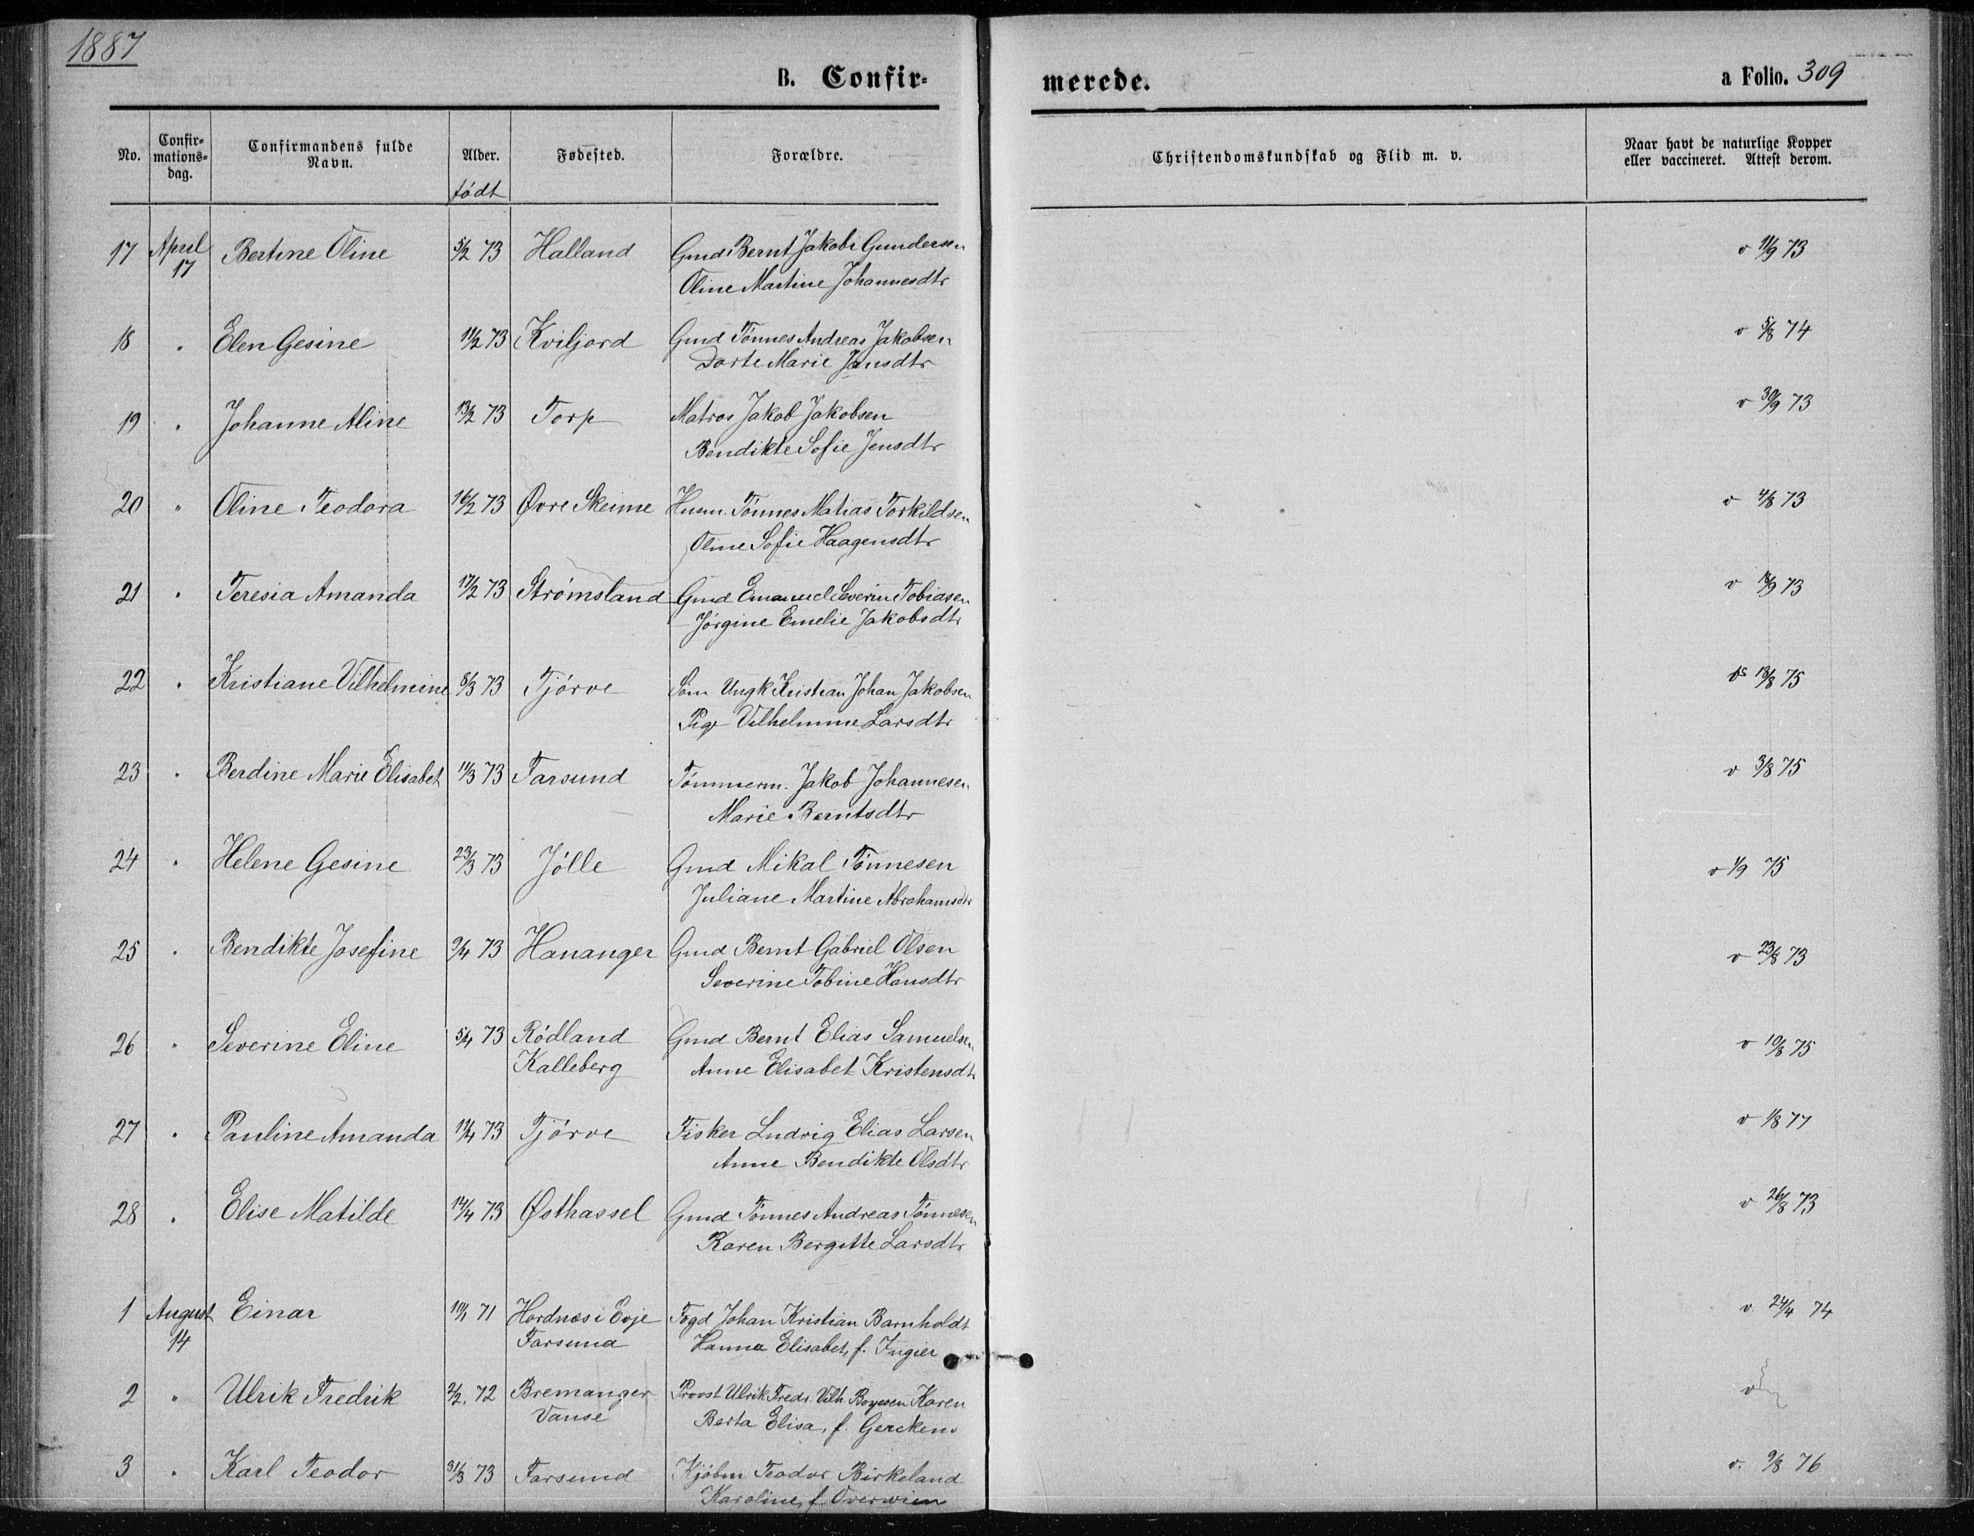 1887
B. Confir-
merede.
a Folio. 309
No.
Confir-
mations-
dag.
Confirmandens fulde
Navn.
Alder.
født
Fødested.
Forældre.
Christendomskundskab og Flid m. v.
Naar havt de naturlige Kopper
eller vaccineret. Attest derom.
17 April 17 Bertine Oline 5/2 73 Halland Gmd Bernt Jakobi Gundersen v 11/9 73
Oline Martine Johannesdtr
18 " Elen Gesine 11/2 73 Kviljord Gmd Tønnes Andreas Jakobsen v 5/8 74
Dorte Marie Jansdtr
19 " Johanne Aline 13/2 73 Torp Matros Jakob Jakobsen v 30/9 73
Bendikte Sofie Jensdtr
20 " Oline Teodora 16/2 73 Øvre Skeime Husm. Tønnes Matias Torkildsen v /8 73
Oline Sofie Haagensdtr
21 " Teresia Amanda 17/2 73 Strømsland Gmd Emanuel Severin Tobiasen v /9 73
Jørgine Emelie Jakobsdtr
22 " Kristiane Vilhelmine 8/3 73 Tjørve Søm Ungk Kristian Johan Jakobsen 13/8 75
Pige Vilhelmine Larsdtr
23 " Berdine Marie Elisabet 11/3 73 Farsund Tømmerm. Jakob Johannesen v 3/8 75
Marie Berntsdtr
24 " Helene Gesine 23/3 73 Jølle Gmd Mikal Tønnesen v 1/9 75
Juliane Martine Abrahamsdtr
25 " Bendikte Josefine /4 73 Hananger Gmd Bernt Gabriel Olsen v 23/8 73
Severine Tobine Hansdtr
26 " Severine Eline 5/4 73 Rødland Gmd Bernt Elias Samuelsen v 10/8 75
Kalleberg Anne Elisabet Kristensdtr
27 " Pauline Amanda /4 73 Tjørve Fisker Ludvig Elias Larsen v 1/8 77
Anne Bendikte Olsdtr
28 " Elise Matilde 14/4 73 Østhassel Gmd Tønnes Andreas Tønnesen v 26/8 73
Karen Bergitte Larsdtr
1 August 14 Einar 10/1 71 Hordnæs i Evje Fogd Johan Kristian Barnholdt v. 24/4 74
Farsund Hanna Elisabet, f. Ingier
2 " Ulrik Fredrik 2/2. 72 Bremanger Provst Ulrik Fredr. Vilh. Boyesen Karen v
Vanse Berta Elisa, f. Gerckens
3 " Karl Teodor 31/3 73 Farsund Kjøbm Teodor Birkeland v. 9/8 76
Karoline, f. Overwien